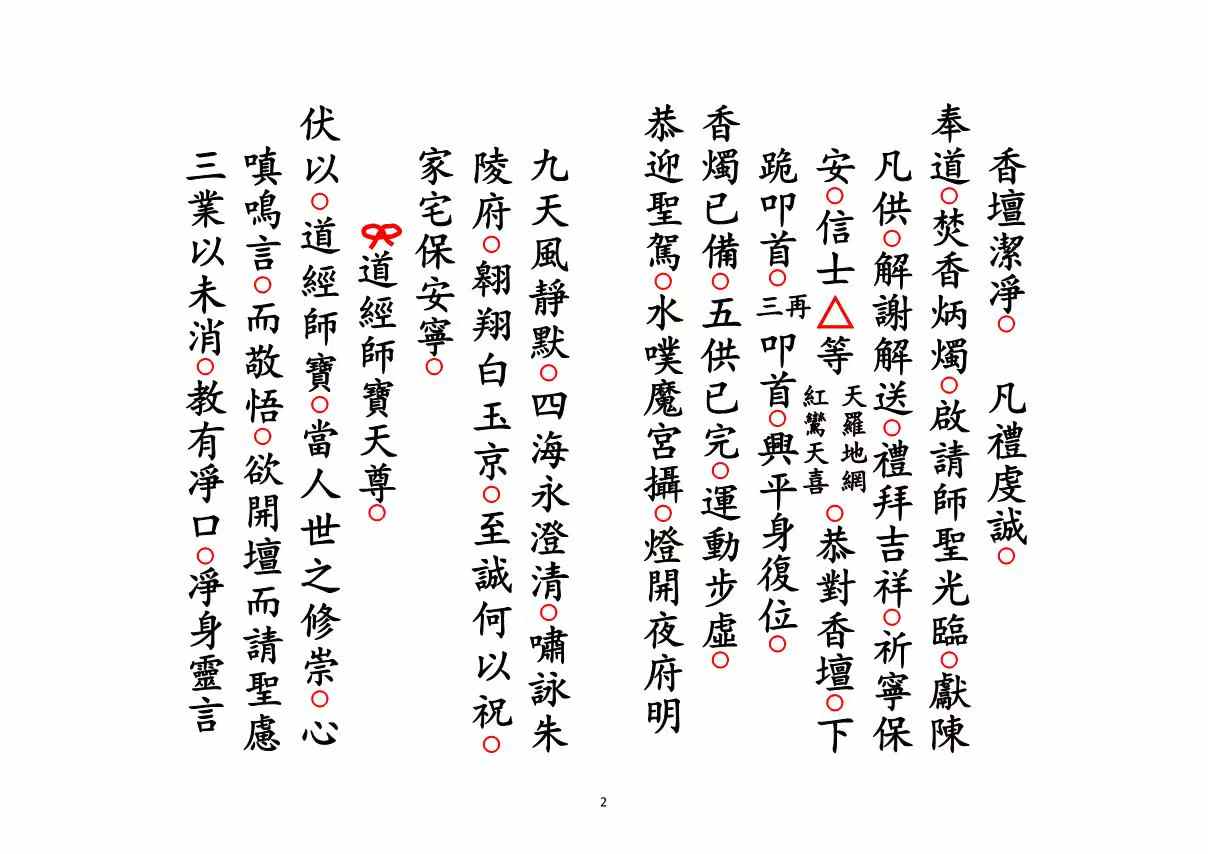 香壇潔淨○　凡禮虔誠○
奉道○焚香炳燭○啟請師聖光臨○獻陳
凡供○解謝解送○禮拜吉祥○祈寧保
安○信士△等 天羅地網 紅鸞天喜 ○恭對香壇○下
跪叩首○再三叩首○興平身復位○
香燭已備○五供已完○運動步虛○
恭迎聖駕○水噗魔宮攝○燈開夜府明
九天風靜默○四海永澄清○嘯詠朱
陵府○翱翔白玉京○至誠何以祝○
家宅保安寧○
道經師寶天尊○
伏以○道經師寶○當人世之修崇○心
嗔鳴言○而敬悟○欲開壇而請聖慮
三業以未消○教有凈口○凈身靈言
2